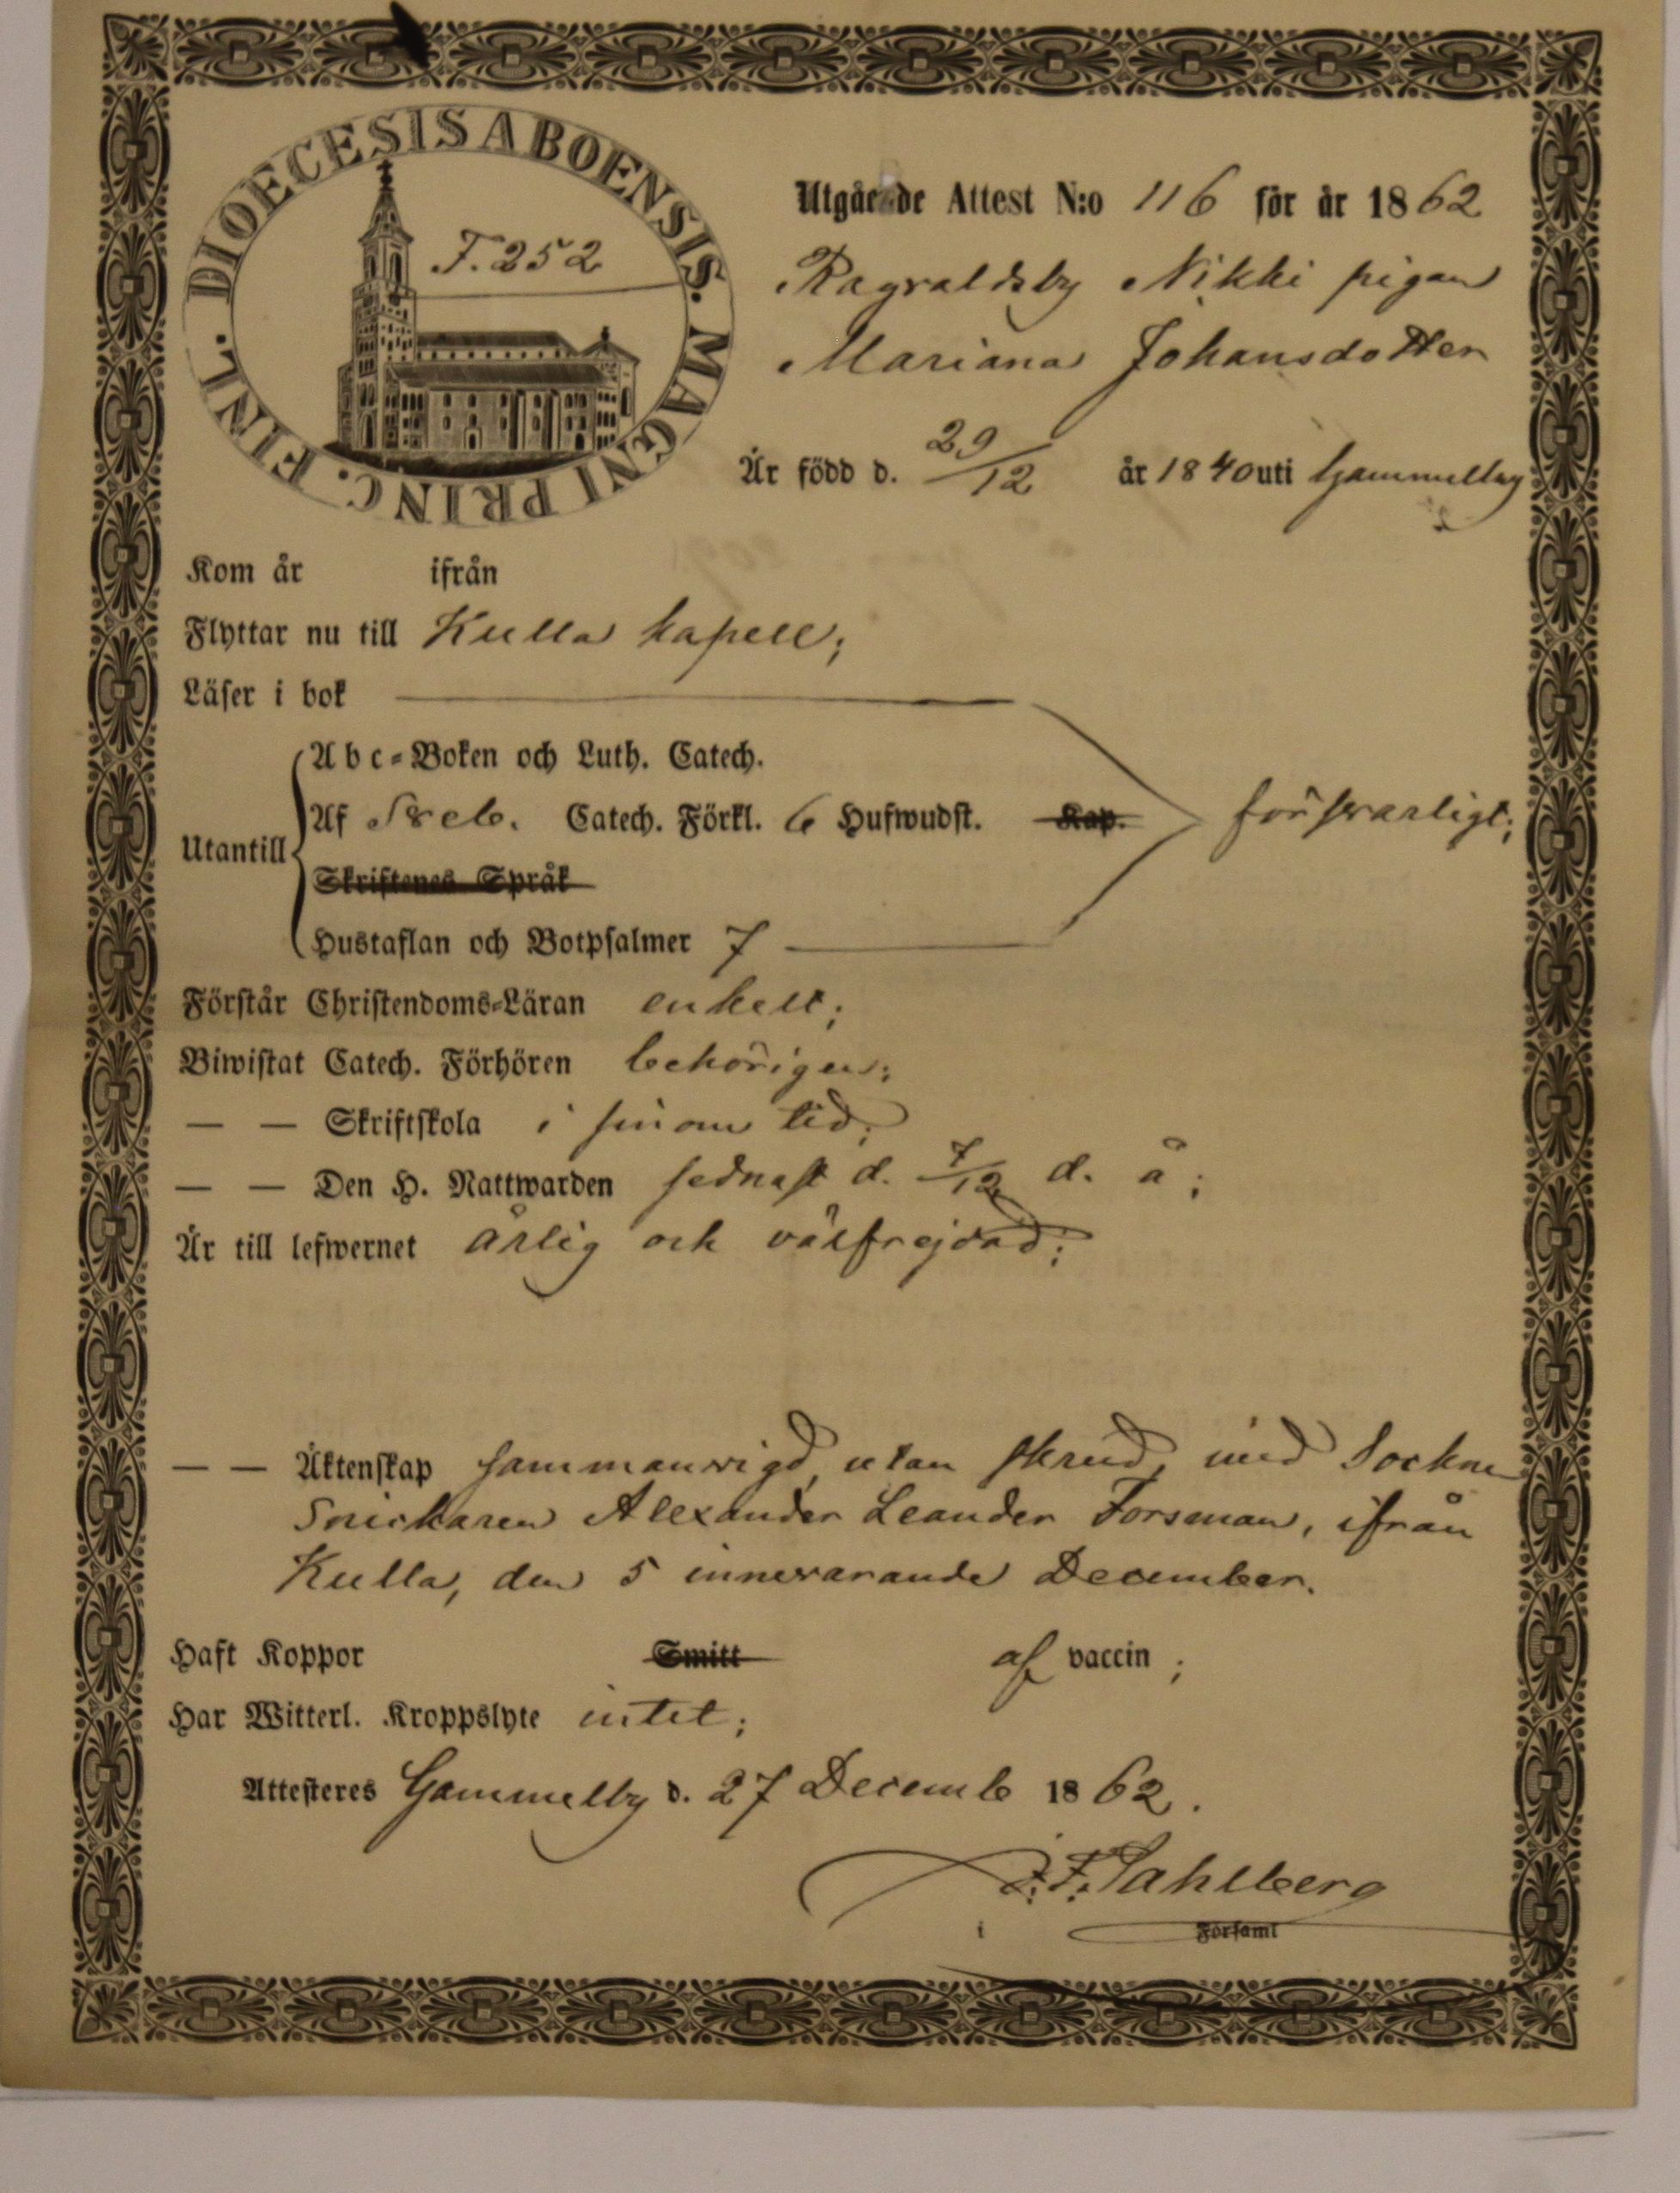 DIOECESIS ABOENSIS. MAGNI PRINC. FINL.
F. 252
Utgående Attest N:o 116 för år 1862
Ragvaldsby Nikki pigan
Mariana Johansdotter
Är född d. 29/12 år 1840 uti Gammelby
Kom år ifrån
Flyttar nu till Kulla kapell;
Läser i bok
Utantill
Abc-Boken och Luth. Catech.
Af Sveb. Catech. Förkl. 6 Hufwudst. Kap.
försvarligt;
Skriftenes Språk
Hustaflan och Botpsalmer 7
Förstår Christendoms-Läran enkelt;
Biwistat Catech. Förhören behörigen;
— — Skriftskola i sinom tid;
— — Den H. Nattwarden sednast d. 7/12 d. å;
Är till lefwernet ärlig och välfrejdad;
— — Äktenskap sammanvigd, utan skrud, med Sockne
Snickaren Alexander Leander Forsman, ifrån
Kulla, den 5 innevarande December.
Haft Koppor Smitt af vaccin ;
Har Witterl. Kroppslyte intet;
Attesteres Gammelby d. 27 Decemb 1862.
F. Sahlberg
i Församl